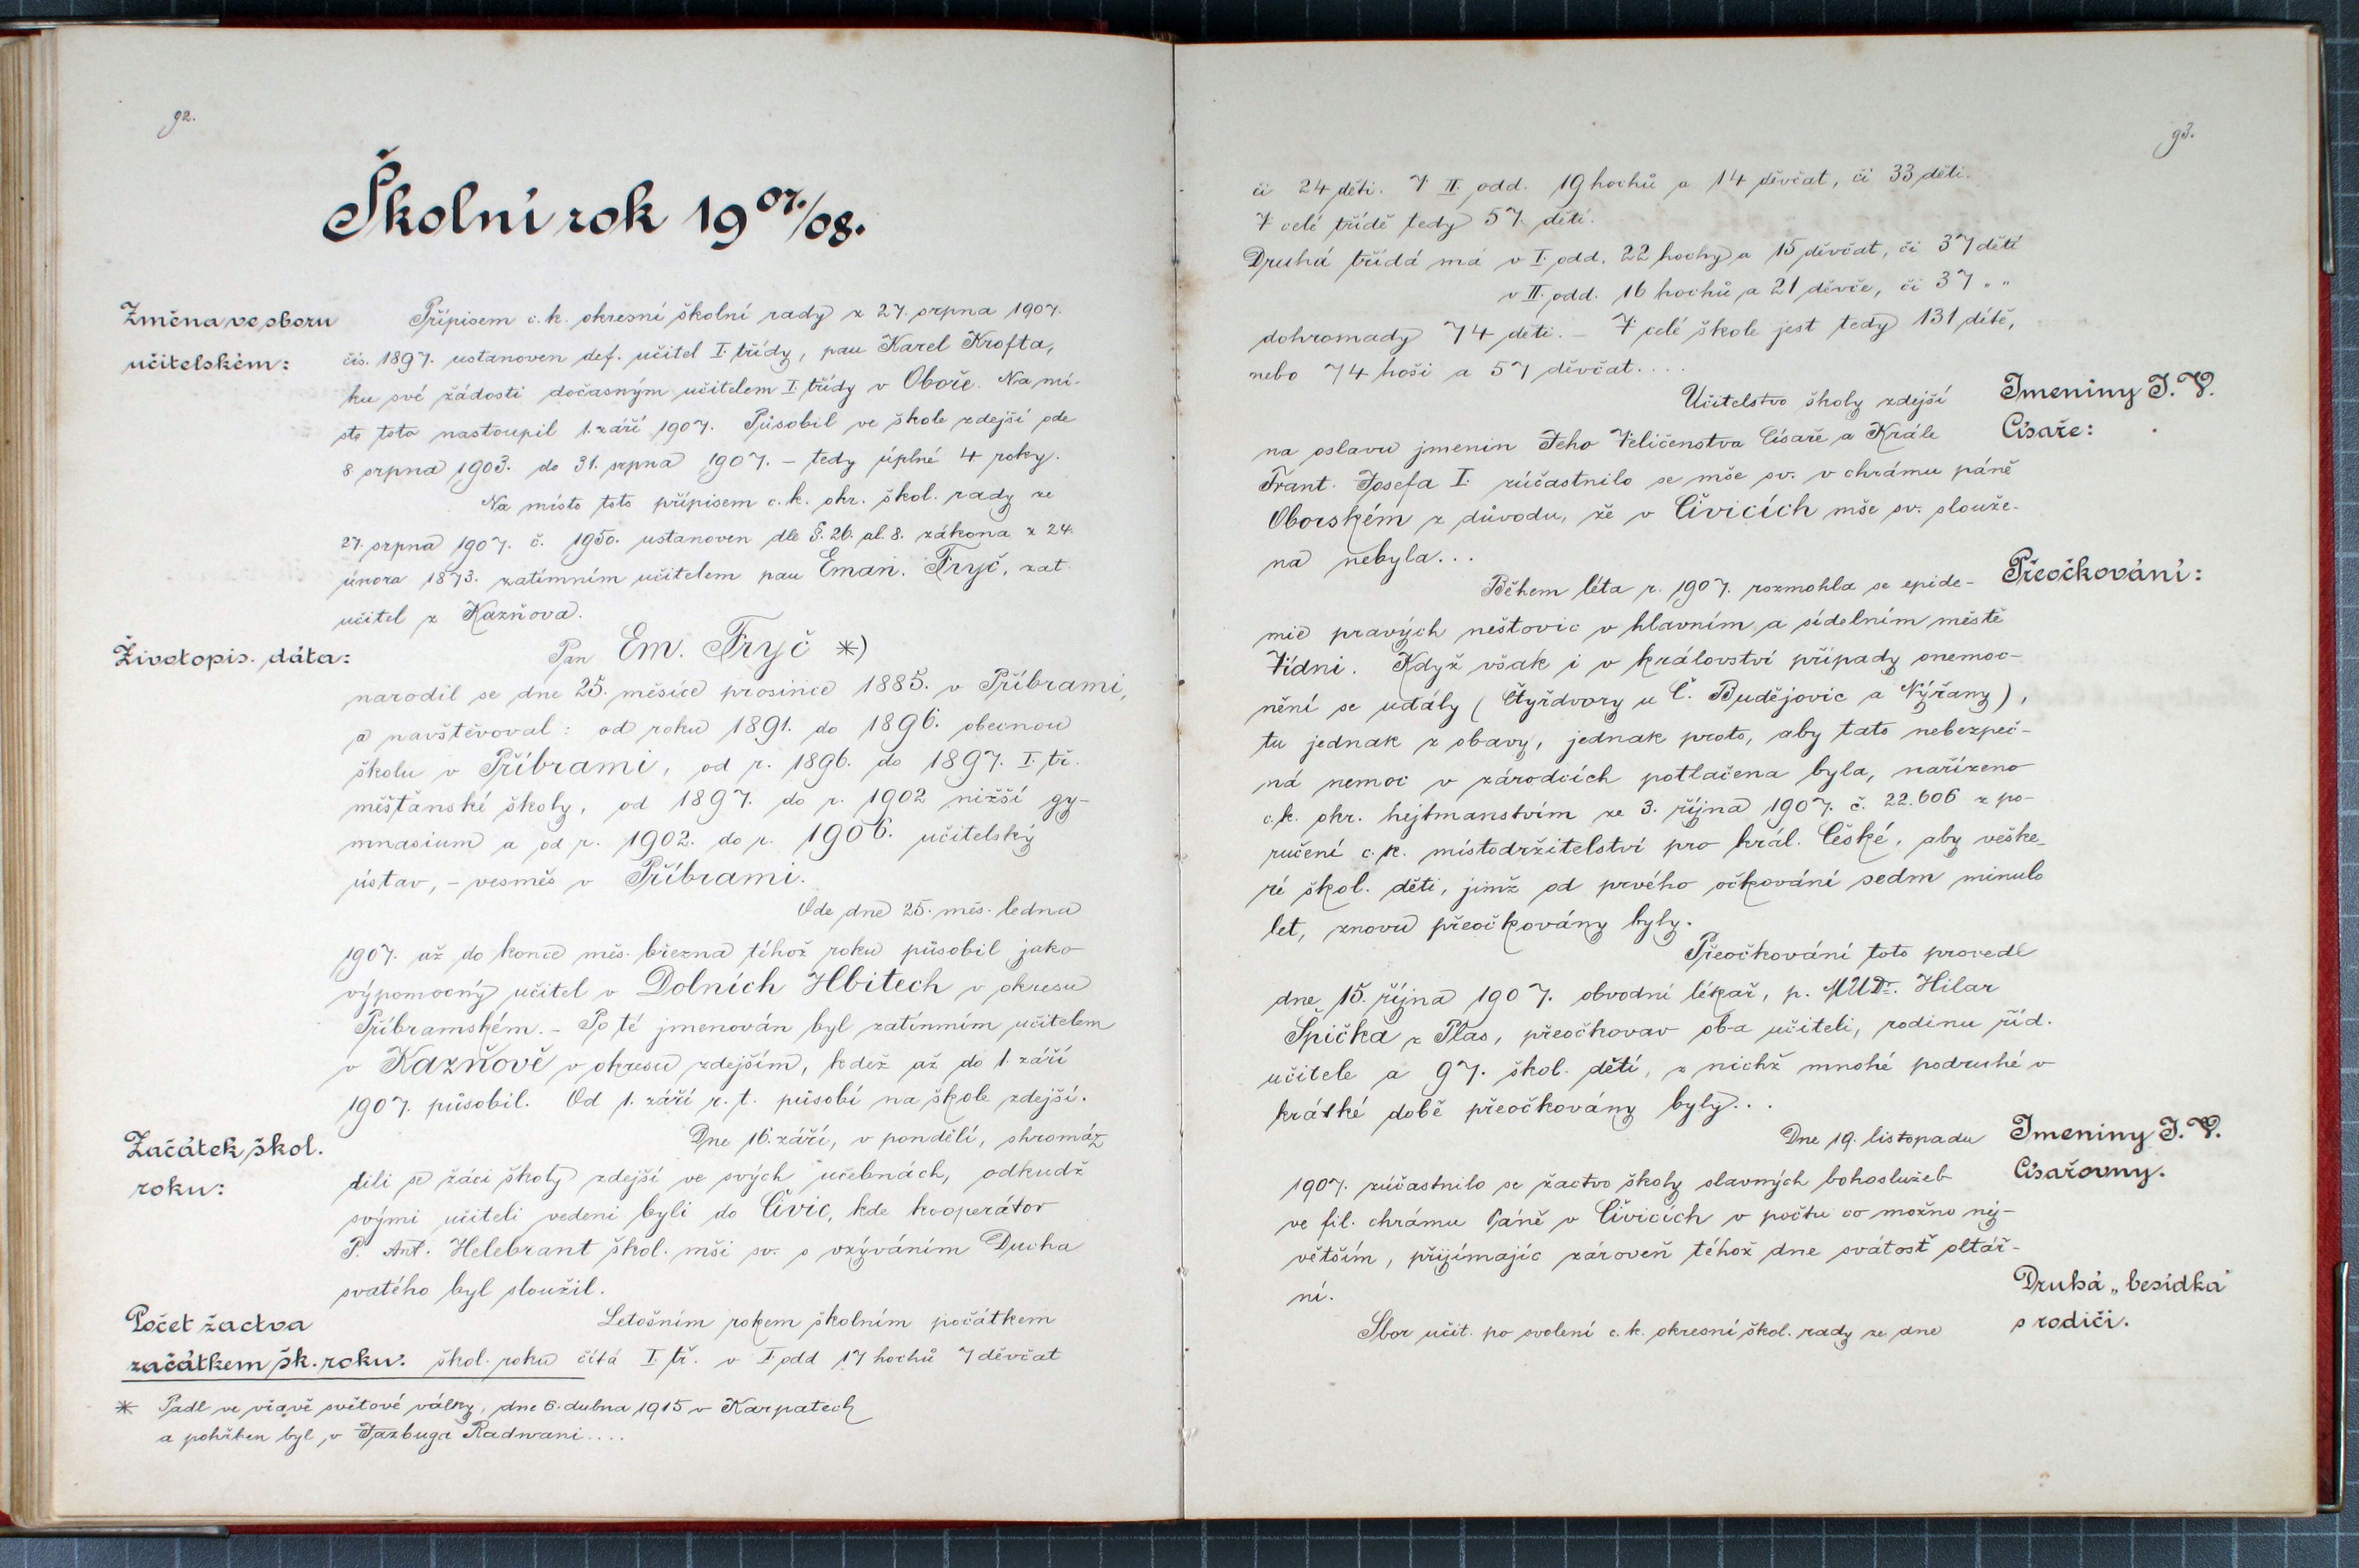 92.
Školní rok 1907./08.
Změna ve sboru
učitelském:
Přípisem c. k. okresní školní rady z 27. srpna 1907.
čís. 1897. ustanoven def. učitel I. třídy, pan Karel Krofta,
ku své žádosti dočasným učitelem I. třídy v Oboře. Na mí-
sto toto nastoupil 1. září 1907. Působil ve škole zdejší ode
8 srpna 1903. do 31. srpna 1907. – tedy úplné 4 roky.
Na místo toto přípisem c. k. okr. škol. rady ze
27. srpna 1907. č. 1950. ustanoven dle §. 26. al. 8. zákona z 24.
února 1873. zatímním učitelem pan Eman. Fryč, zat.
učitel z Kazňova.
Životopis. dáta:
Pan Em. Fryč *)
narodil se dne 25. měsíce prosince 1885. v Příbrami,
a navštěvoval: od roku 1891. do 1896. obecnou
školu v Příbrami, od r. 1896. do 1897. I. tř.
měšťanské školy, od 1897. do r. 1902 nižší gy-
mnasium a od r. 1902. do r. 1906. učitelský
ústav, – vesměs v Příbrami.
Ode dne 25. měs. ledna
1907. až do konce měs. března téhož roku působil jako
výpomocný učitel v Dolních Hbitech v okresu
Příbramském. – Po té jmenován byl zatímním učitelem
v Kazňově v okresu zdejším, kdež až do 1. září
1907. působil. Od 1. září r. t. působí na škole zdejší.
Začátek škol.
roku:
Dne 16. září, v pondělí, shromáz
dili se žáci školy zdejší ve svých učebnách, odkudž
svými učiteli vedeni byli do Čivic, kde kooperátor
P. Ant. Helebrant škol. mši sv. s vzýváním Ducha
svatého byl sloužil.
Počet žactva
začátkem šk. roku:
Letošním rokem školním počátkem
škol. roku čítá I. tř. v I. odd 17 hochů 7 děvčat
* Padl ve vřavě světové války, dne 6. dubna 1915 v Karpatech
a pohřben byl v Jazbuga Radwani....
93.
či 24 dětí. V II. odd. 19 hochů a 14 děvčat, či 33 dětí.
V celé třídě tedy 57. dětí.
Druhá třídá má v I. odd. 22 hochy a 15 děvčat, či 37 dětí
v II. odd. 16 hochů a 21 děvče, či 37 „ „
dohromady 74 dětí. – V celé škole jest tedy 131 dítě,
nebo 74 hoši a 57 děvčat....
Jmeniny J. V.
Císaře:
Učitelstvo školy zdejší
na oslavu jmenin Jeho Veličenstva Císaře a Krále
Frant. Josefa I. zúčastnilo se mše sv. v chrámu páně
Oborském z důvodu, že v Čivicích mše sv. slouže-
na nebyla...
Přeočkování:
Během léta r. 1907. rozmohla se epide-
mie pravých neštovic v hlavním a sídelním městě
Vídni. Když však i v království případy onemoc-
nění se udály (Čtyřdvory u Č. Budějovic a Nýřany),
tu jednak z obavy, jednak proto, aby tato nebezpeč-
ná nemoc v zárodcích potlačena byla, nařízeno
c. k. okr. hejtmanstvím ze 3. října 1907. č. 22.606 z po-
ručení c. k. místodržitelství pro král. České, aby veške-
ré škol. děti, jimž od prvého očkování sedm minulo
let, znovu přeočkovány byly.
Přeočkování toto provedl
dne 15. října 1907. obvodní lékař, p. MUDr. Hilar
Špička z Plas, přeočkovav oba učiteli, rodinu říd.
učitele a 97. škol. dětí, z nichž mnohé podruhé v
krátké době přeočkovány byly...
Jmeniny J. V.
Císařovny.
Dne 19. listopadu
1907. zúčastnilo se žactvo školy slavných bohoslužeb
ve fil. chrámu Páně v Čivicích v počtu co možno nej-
větším, přijímajíc zároveň téhož dne svátosť oltář-
ní.
Druhá „besídka"
s rodiči.
Sbor učit. po svolení c. k. okresní škol. rady ze dne